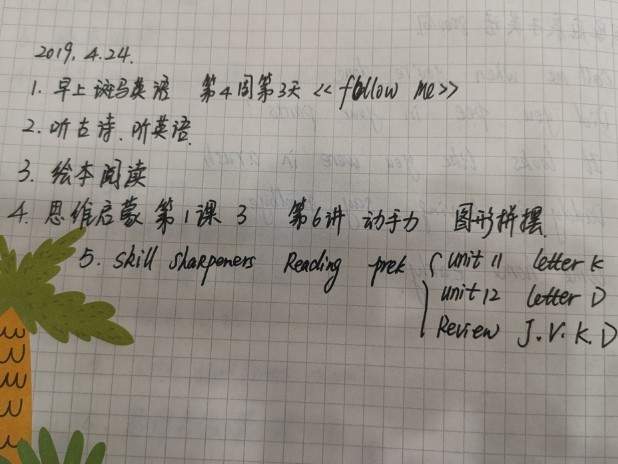 2019.4.24.
1. 早上斑马英语 第4周第3天 <<follow me>>
2. 听古诗、听英语.
3. 绘本阅读
4. 思维启蒙 第1课 3 第6讲 动手力 图形拼摆.
5. skill sharpeners Reading prek { unit 11 letter K
unit 12 letter D
Review J.V.K.D